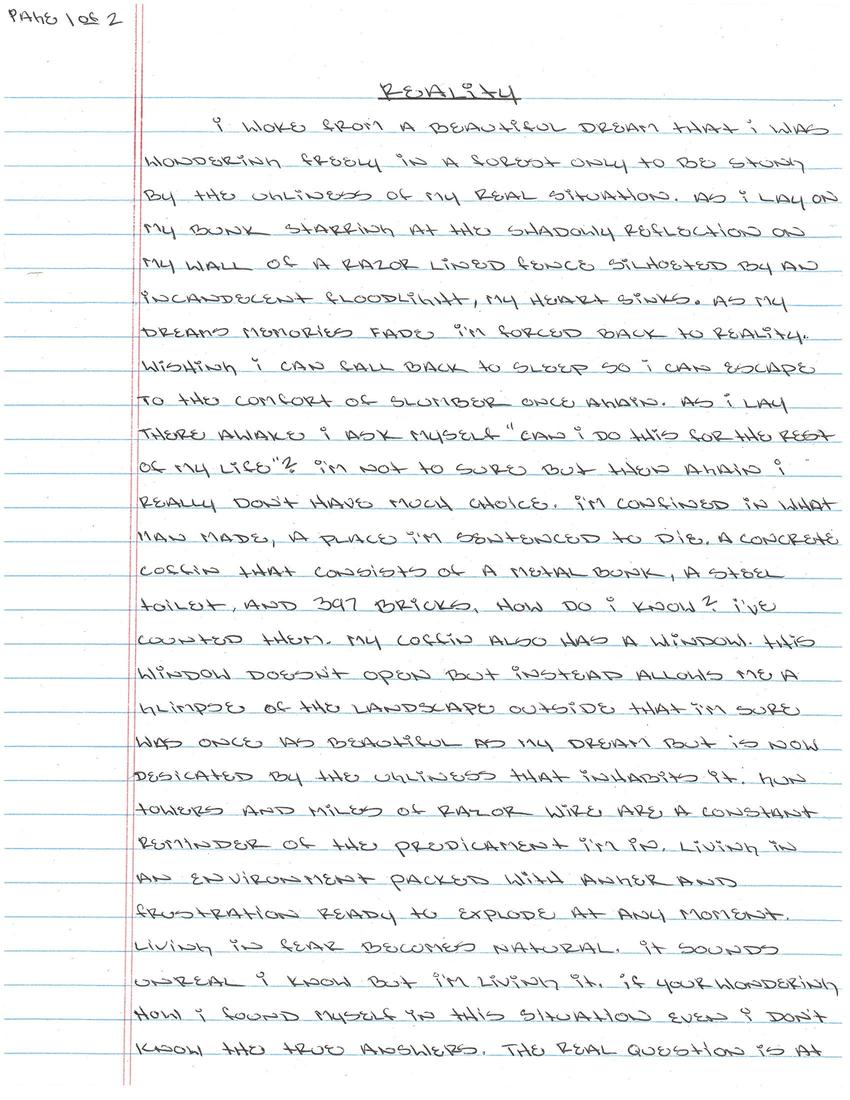 PAGE 1 of 2
REALITY
i WOKE FROM A BEAUTIFUL DREAM THAT i WAS
WONDERING FREELY IN A FOREST ONLY TO BE STUNG
BY THE UGLINESS OF MY REAL SITUATION. AS i LAY ON
MY BUNK STARRING AT THE SHADOWLY REFLECTION ON
MY WALL OF A RAZOR LINED FENCE SILHOETED BY AN
INCANDECENT FLOODLIGHT, MY HEART SINKS. AS MY
DREAMS MEMORIES FADE i'M FORCED BACK TO REALITY.
WISHING i CAN FALL BACK TO SLEEP SO i CAN ESCAPE
TO THE COMFORT OF SLUMBER ONCE AGAIN. AS i LAY
THERE AWAKE i ASK MYSELF "CAN i DO THIS FOR THE REST
OF MY LIFE"? i'M NOT TO SURE BUT THEN AGAIN i
REALLY DON'T HAVE MUCH CHOICE. i'M CONFINED IN WHAT
MAN MADE, A PLACE i'M SENTENCED TO DIE. A CONCRETE
COFFIN THAT CONSISTS OF A METAL BUNK, A STEEL
TOILET, AND 397 BRICKS. HOW DO i KNOW? i'VE
COUNTED THEM. MY COFFIN ALSO HAS A WINDOW. THIS
WINDOW DOESN'T OPEN BUT INSTEAD ALLOWS ME A
GLIMPSE OF THE LANDSCAPE OUTSIDE THAT i'M SURE
WAS ONCE AS BEAUTIFUL AS MY DREAM BUT IS NOW
DESICATED BY THE UGLINESS THAT INHABITS IT. GUN
TOWERS AND MILES OF RAZOR WIRE ARE A CONSTANT
REMINDER OF THE PREDICAMENT i'M IN. LIVING IN
AN ENVIRONMENT PACKED WITH ANGER AND
FRUSTRATION READY TO EXPLODE AT ANY MOMENT.
LIVING IN FEAR BECOMES NATURAL. IT SOUNDS
UNREAL i KNOW BUT i'M LIVING IT. IF YOUR WONDERING
HOW i FOUND MYSELF IN THIS SITUATION EVEN i DON'T
KNOW THE TRUE ANSWERS. THE REAL QUESTION IS AT